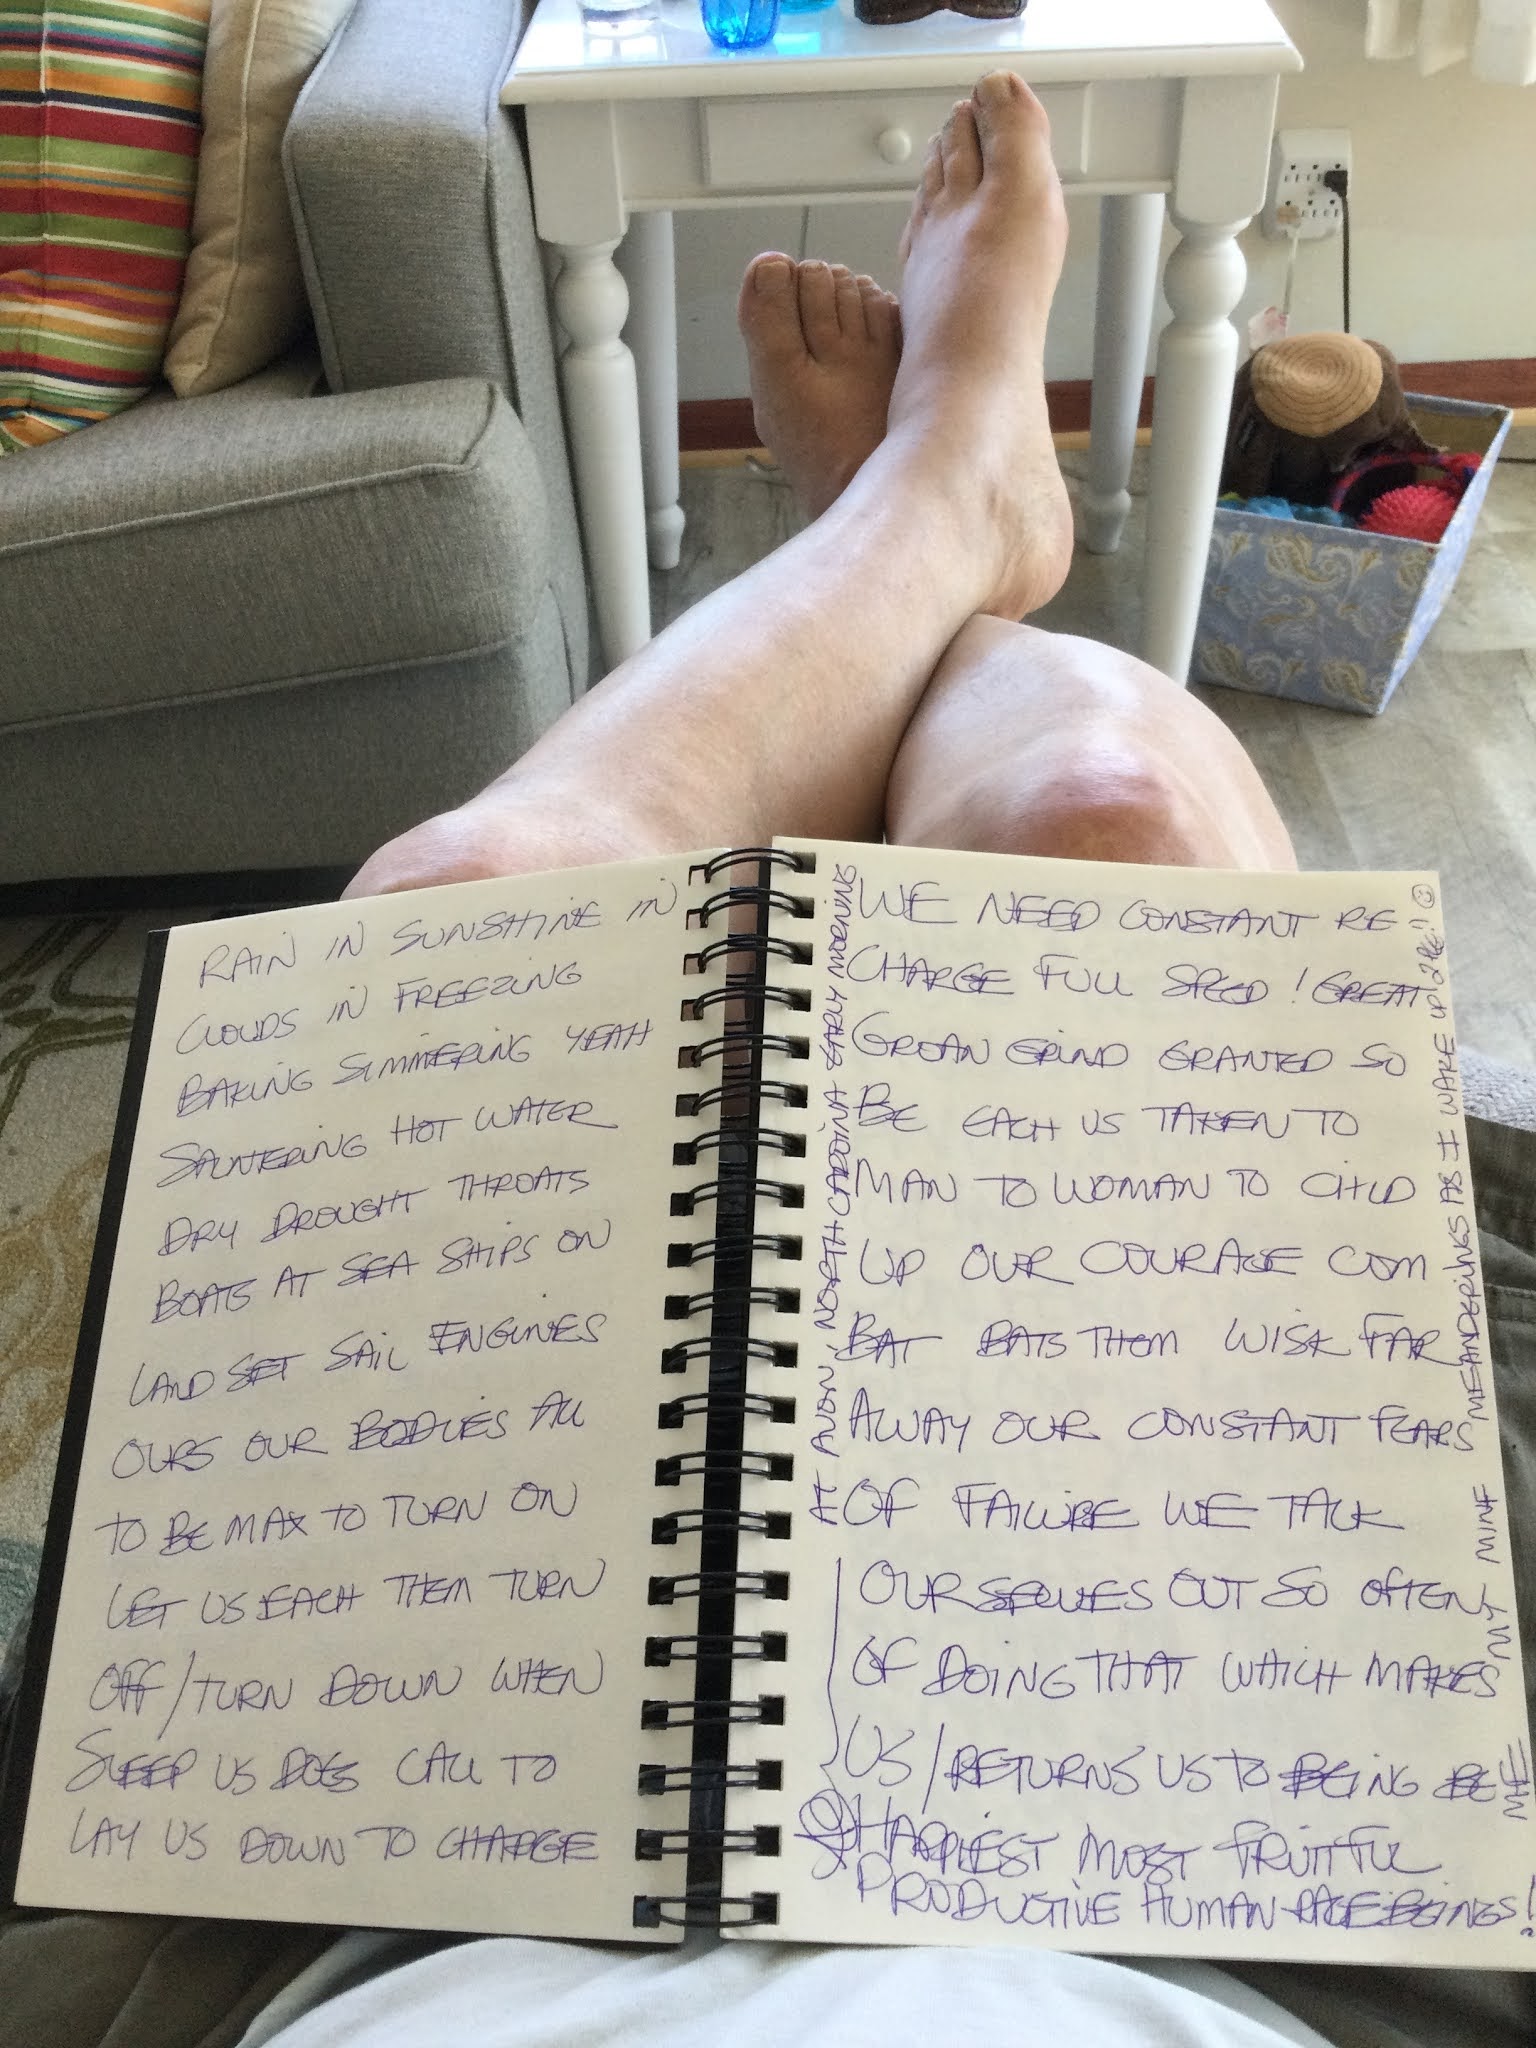 RAIN IN SUNSHINE IN
CLOUDS IN FREEZING
BAKING SIMMERING YEAH
SAUNTERING HOT WATER
DRY DROUGHT THROATS
BOATS AT SEA SHIPS ON
LAND SET SAIL ENGINES
OURS OUR BODIES ALL
TO BE MAX TO TURN ON
LET US EACH THEM TURN
OFF/TURN DOWN WHEN
SLEEP US DOES CALL TO
LAY US DOWN TO CHARGE
WE NEED CONSTANT RE
CHARGE FULL SPEED! GREAT
GROAN GRIND GRANTED SO
BE EACH US TAKEN TO
MAN TO WOMAN TO CHILD
UP OUR COURAGE COM
BAT BATS THEM WISK FAR
AWAY OUR CONSTANT FEARS
OF FAILURE WE TALK
OURSELVES OUT SO OFTEN
OF DOING THAT WHICH MAKES
US/RETURNS US TO BEING BE
HAPPIEST MOST FRUITFUL
PRODUCTIVE HUMAN RACE BEINGS!
AT AVON, NORTH CAROLINA EARLY MORNING
ME MY MINE MEANDERINGS AS I WAKE UP